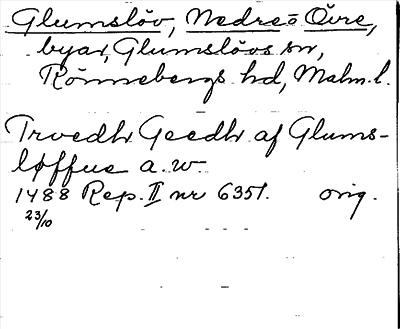 Glumslöv, Nedre o Övre,
byar, Glumslövs sn,
Rönnebergs hd, Malm. l.
Truedh Geedh af Glums-
løffue a.w.
1488 Rep. II nr 6351. orig.
23/10